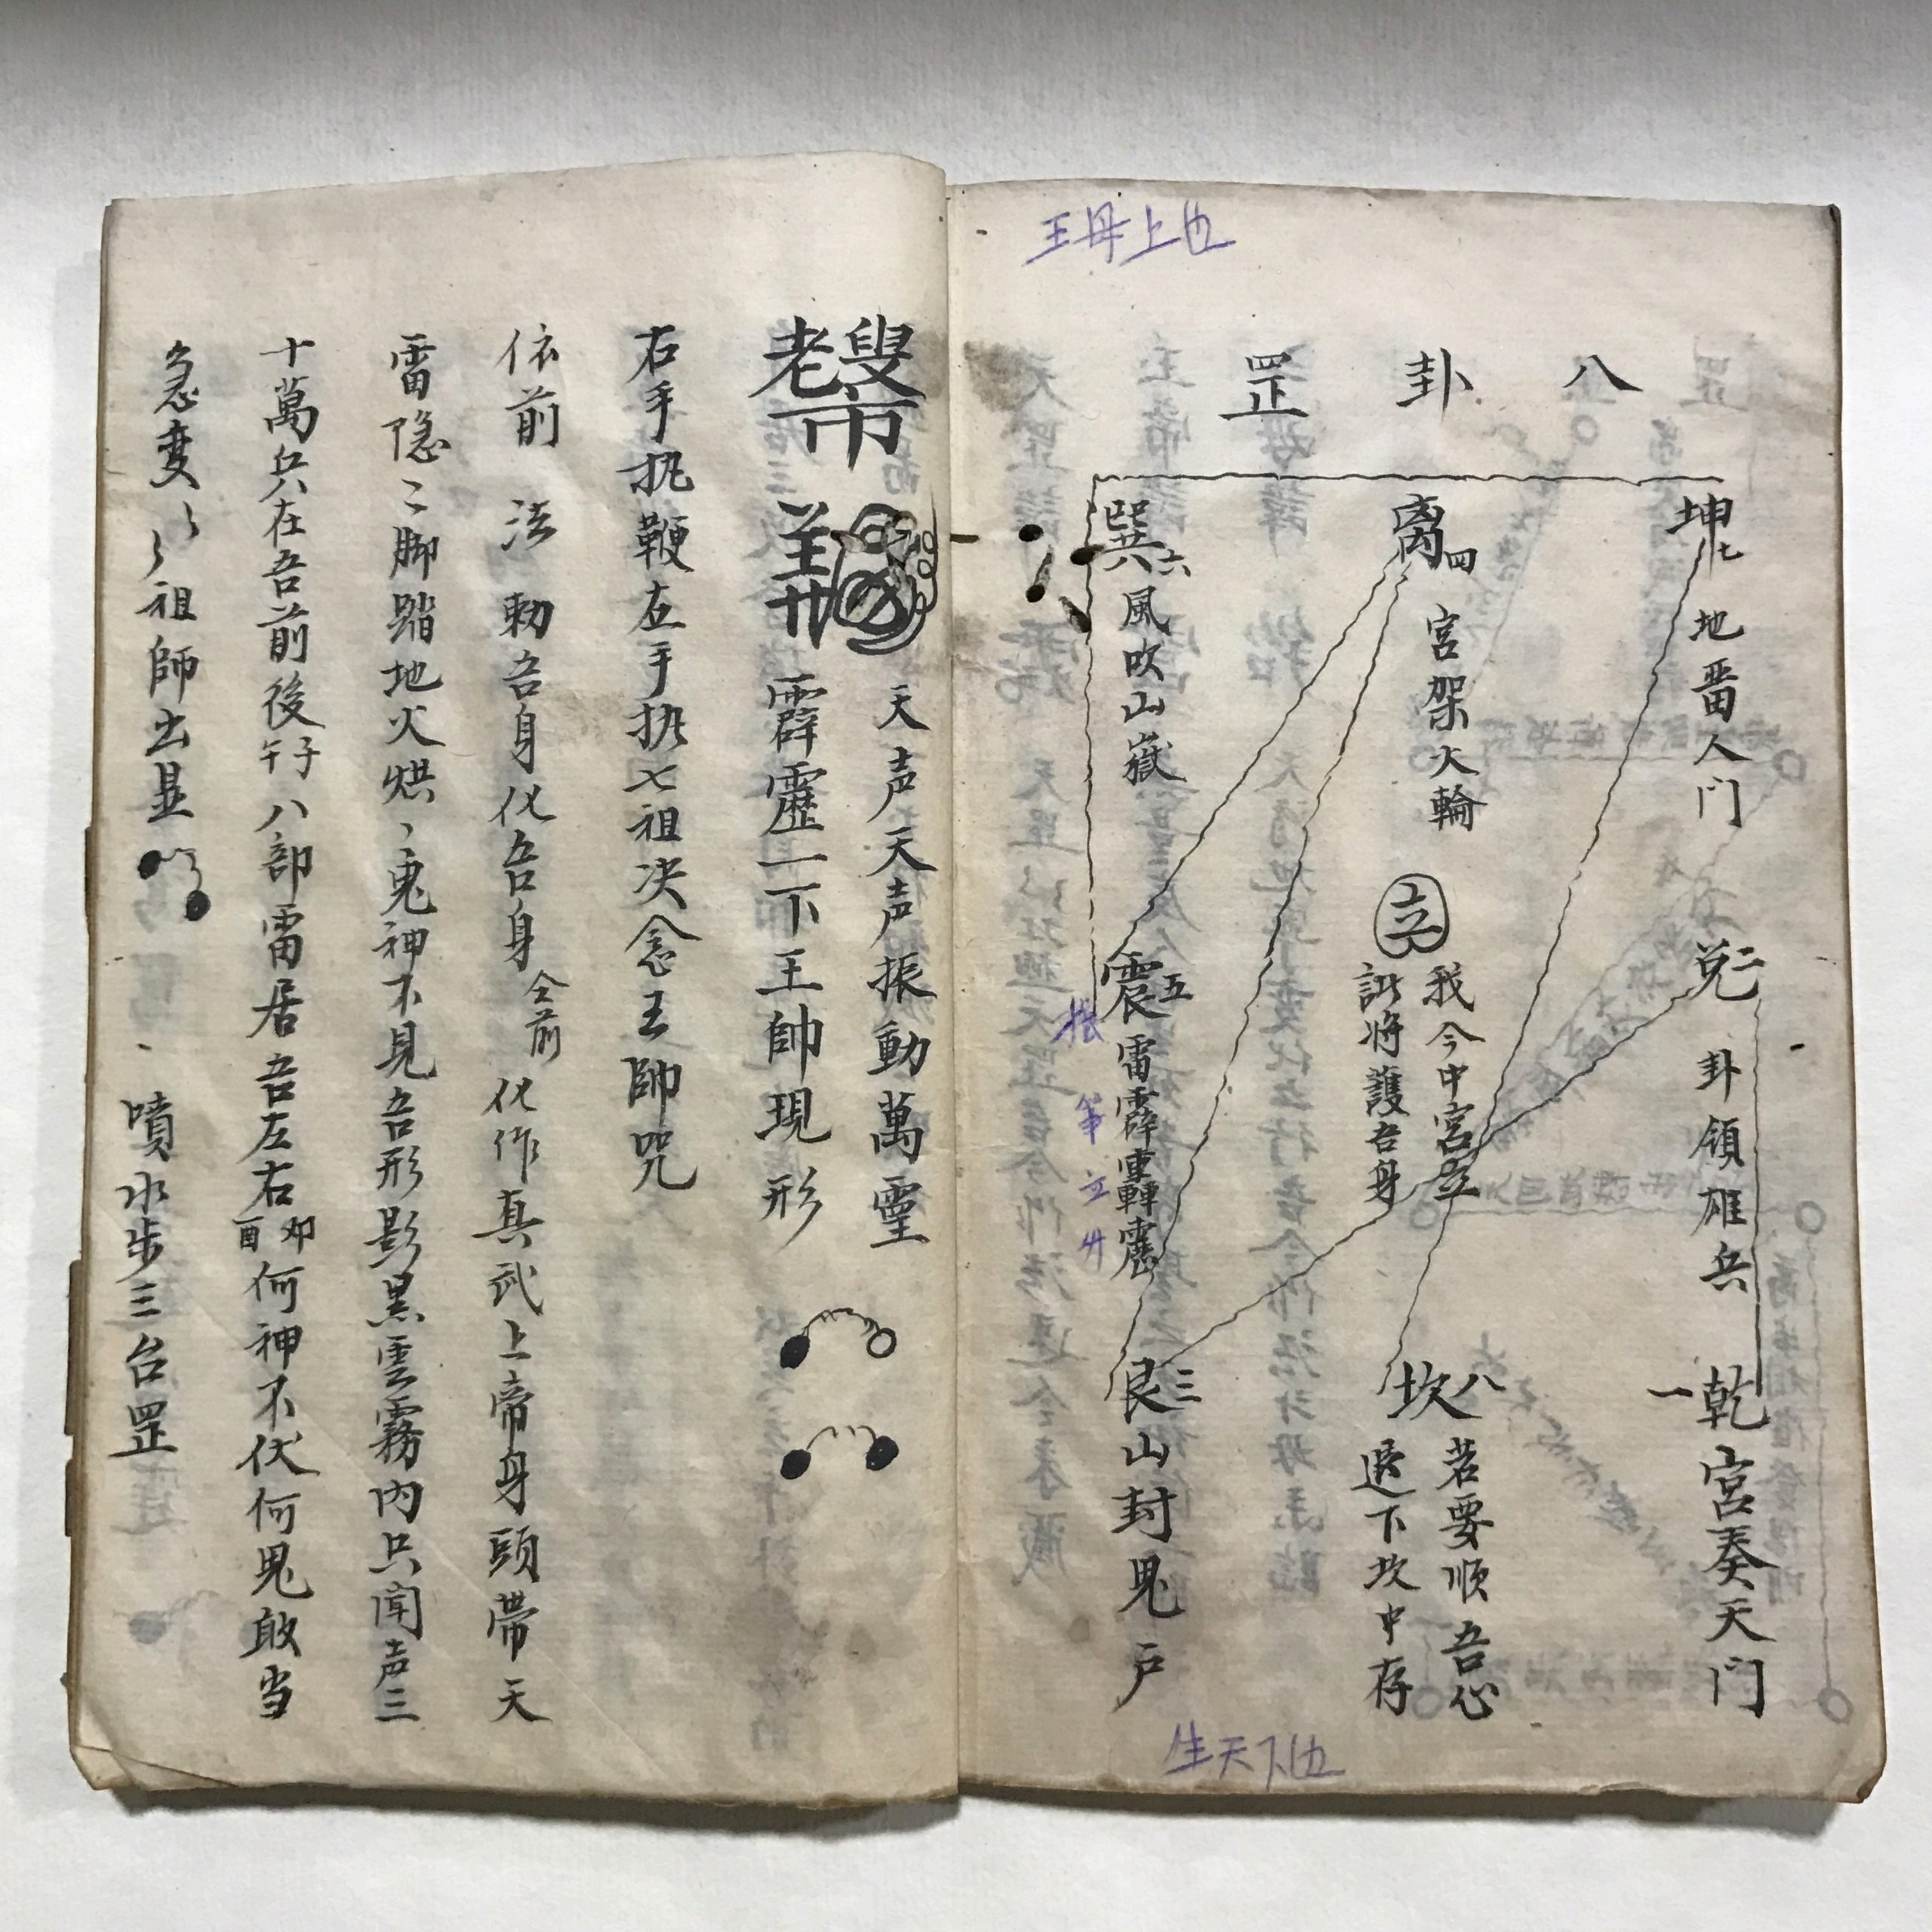 王母上也
八卦罡
坤七 地番人门
兌二 卦領雄兵
一乾宮奏天门
离四 宮架火輪
我今中宮立
訨将護吾身
坎八 若要順吾心
退下坎中存
巽六 風吹山嶽
震五 雷霹靂
艮三 山封鬼戸
生天下也
天声天声振動萬霊
霹靂一下王帥現形
右手执鞭左手执七祖决念王帥咒
依前 法 勅吾身化吾身 仝前 化作真武上帝身頭帶天
雷隐〻脚踏地火烘〻鬼神不見吾形影黑雲霧内只闻声三
十萬兵在吾前後 子午 八部雷居吾左右 卯酉 何神不伏何鬼敢当
急変〻〻祖師出显 噴水步三台罡